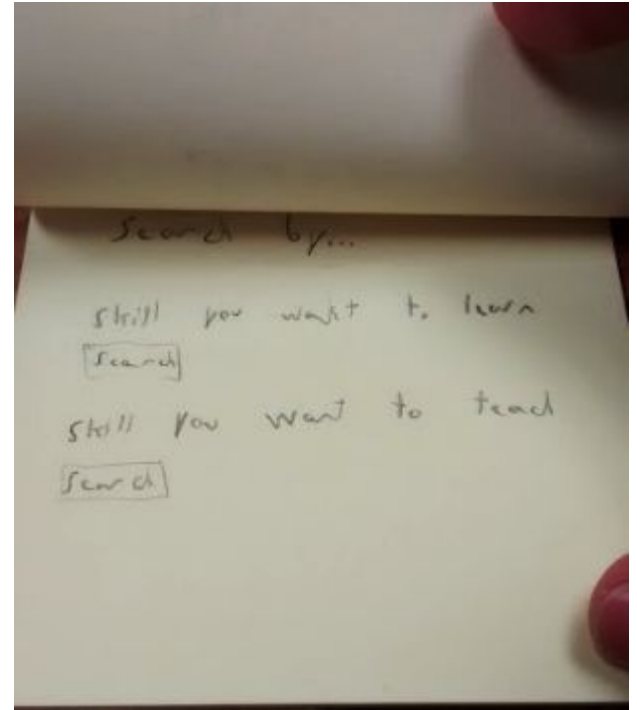 Search by...
skill you want to learn
Search
skill you want to teach
Search